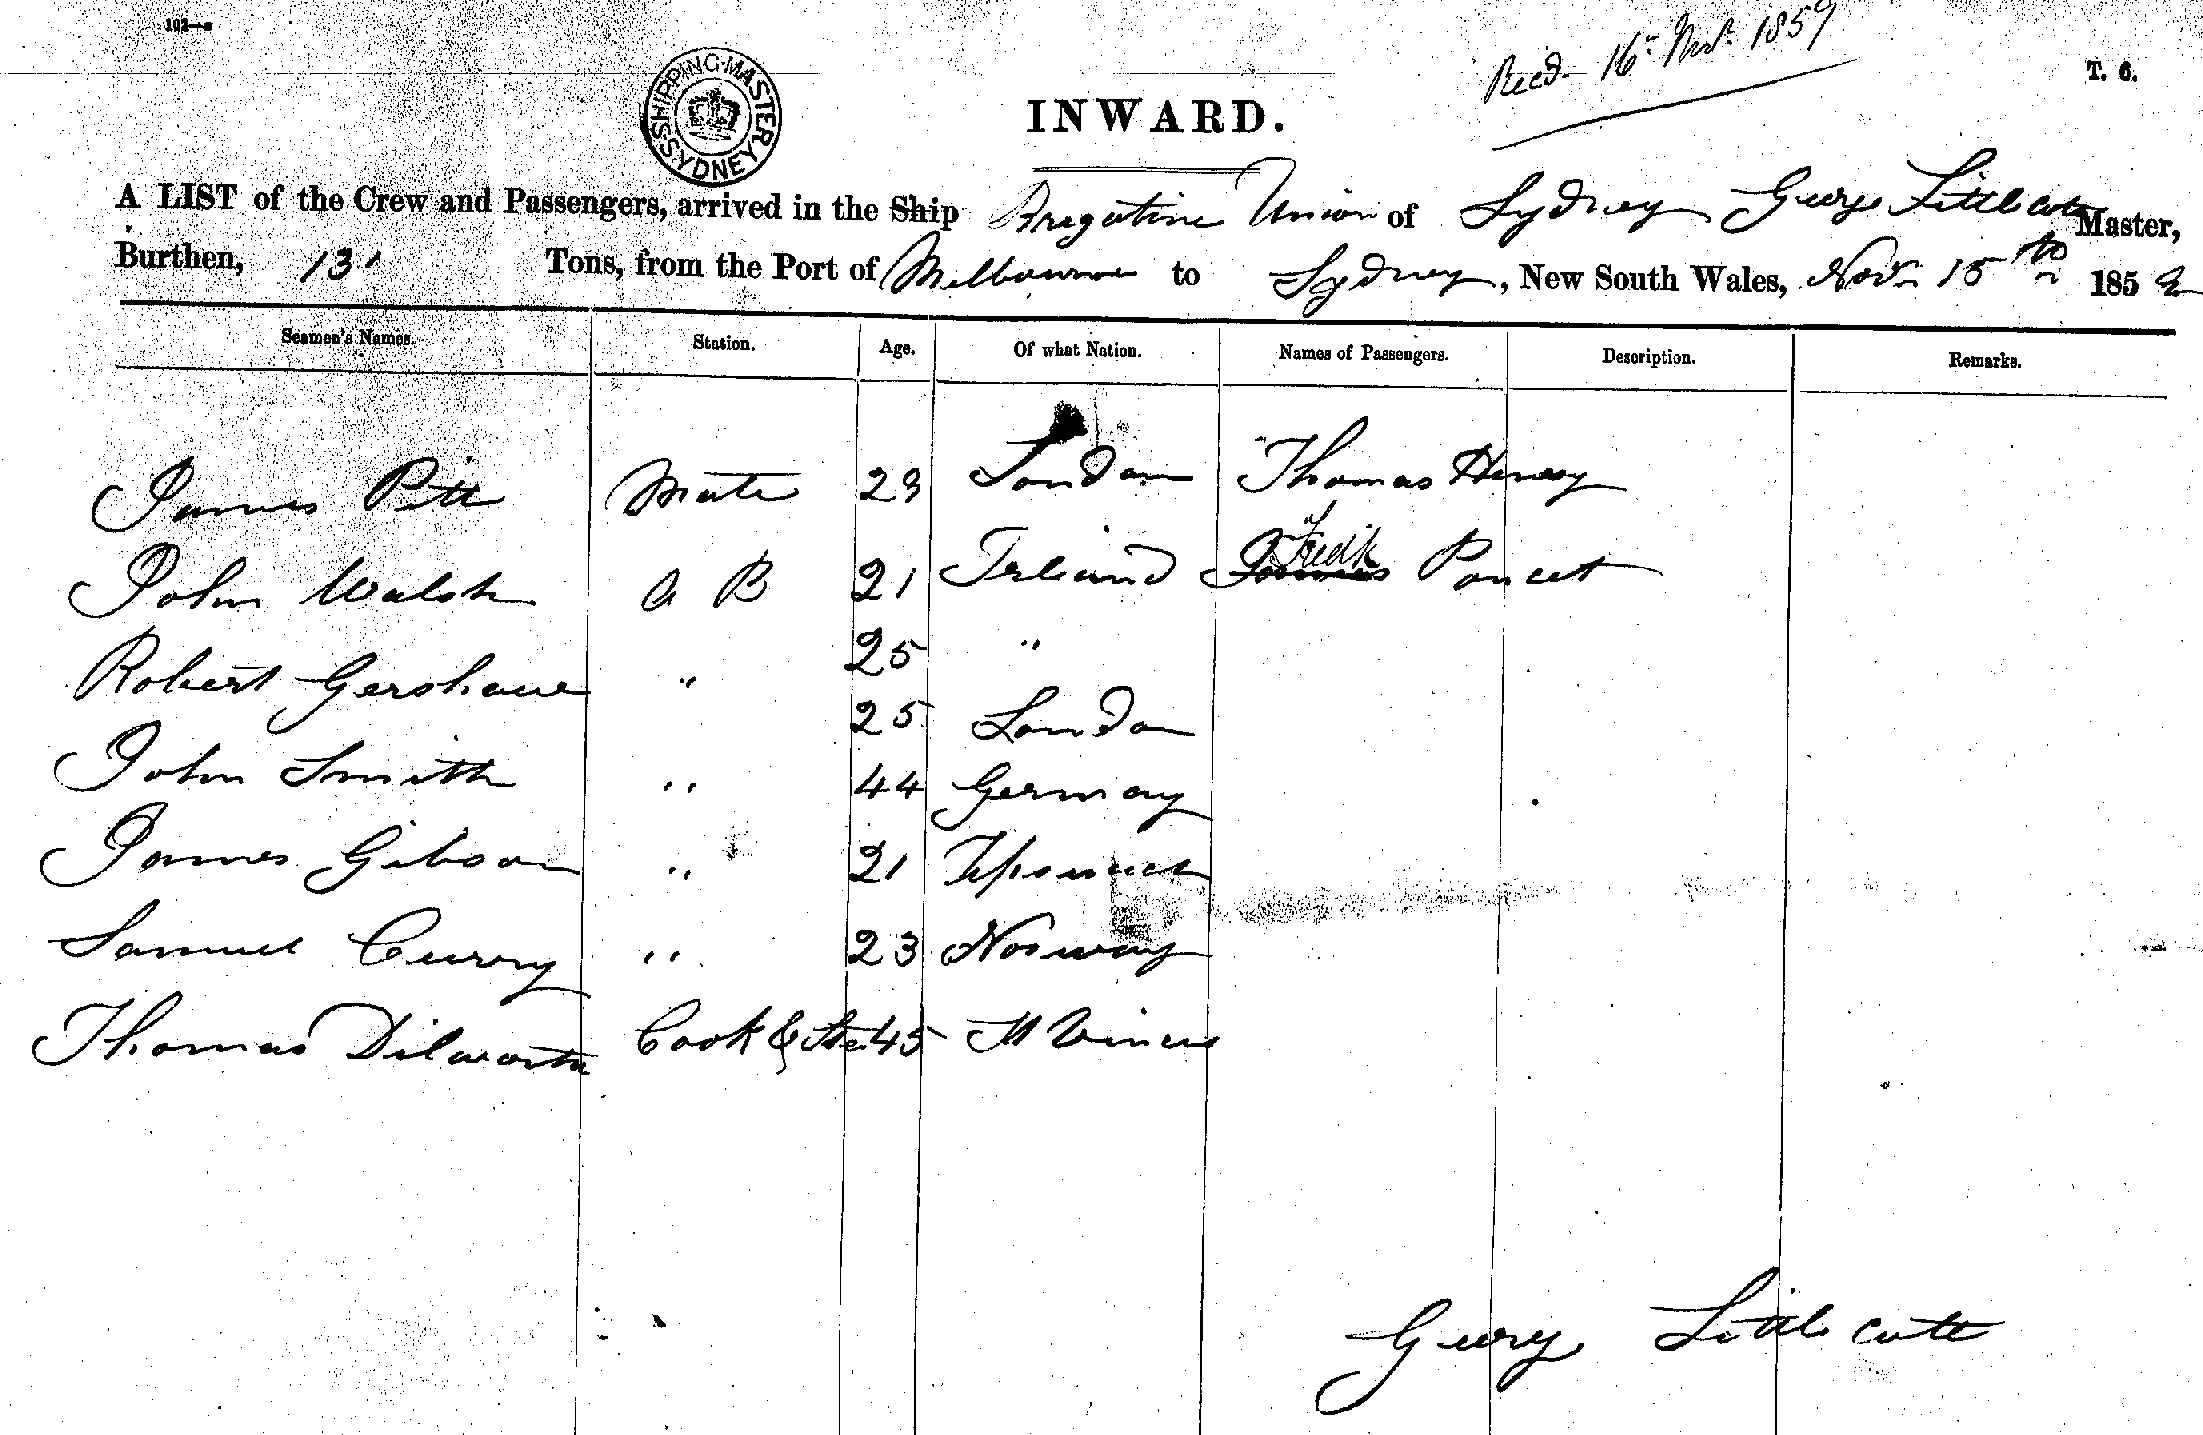 102—a
Recd 16th Novr 1859
T. 6.
SHIPPING MASTER SYDNEY
INWARD.
A LIST of the Crew and Passengers, arrived in the Ship Bregatine Union of Sydney George Littlecott Master,
Burthen, 131 Tons, from the Port of Melbourne to Sydney, New South Wales, Novr 15th 1859
Seamen's Names. Station. Age. Of what Nation. Names of Passengers. Description. Remarks.
James Pitt Mate 23 London Thomas Henry
John Walsh A B 21 Ireland James Fredk Poncet
Robert Gershawe " 25 "
John Smith " 25 London
James Gibson " 44 Germany
Samuel Curry " 21 Ipswich
" 23 Norway
Thomas Dilworth Cook & Std 45 St Vincent
George Littlecott